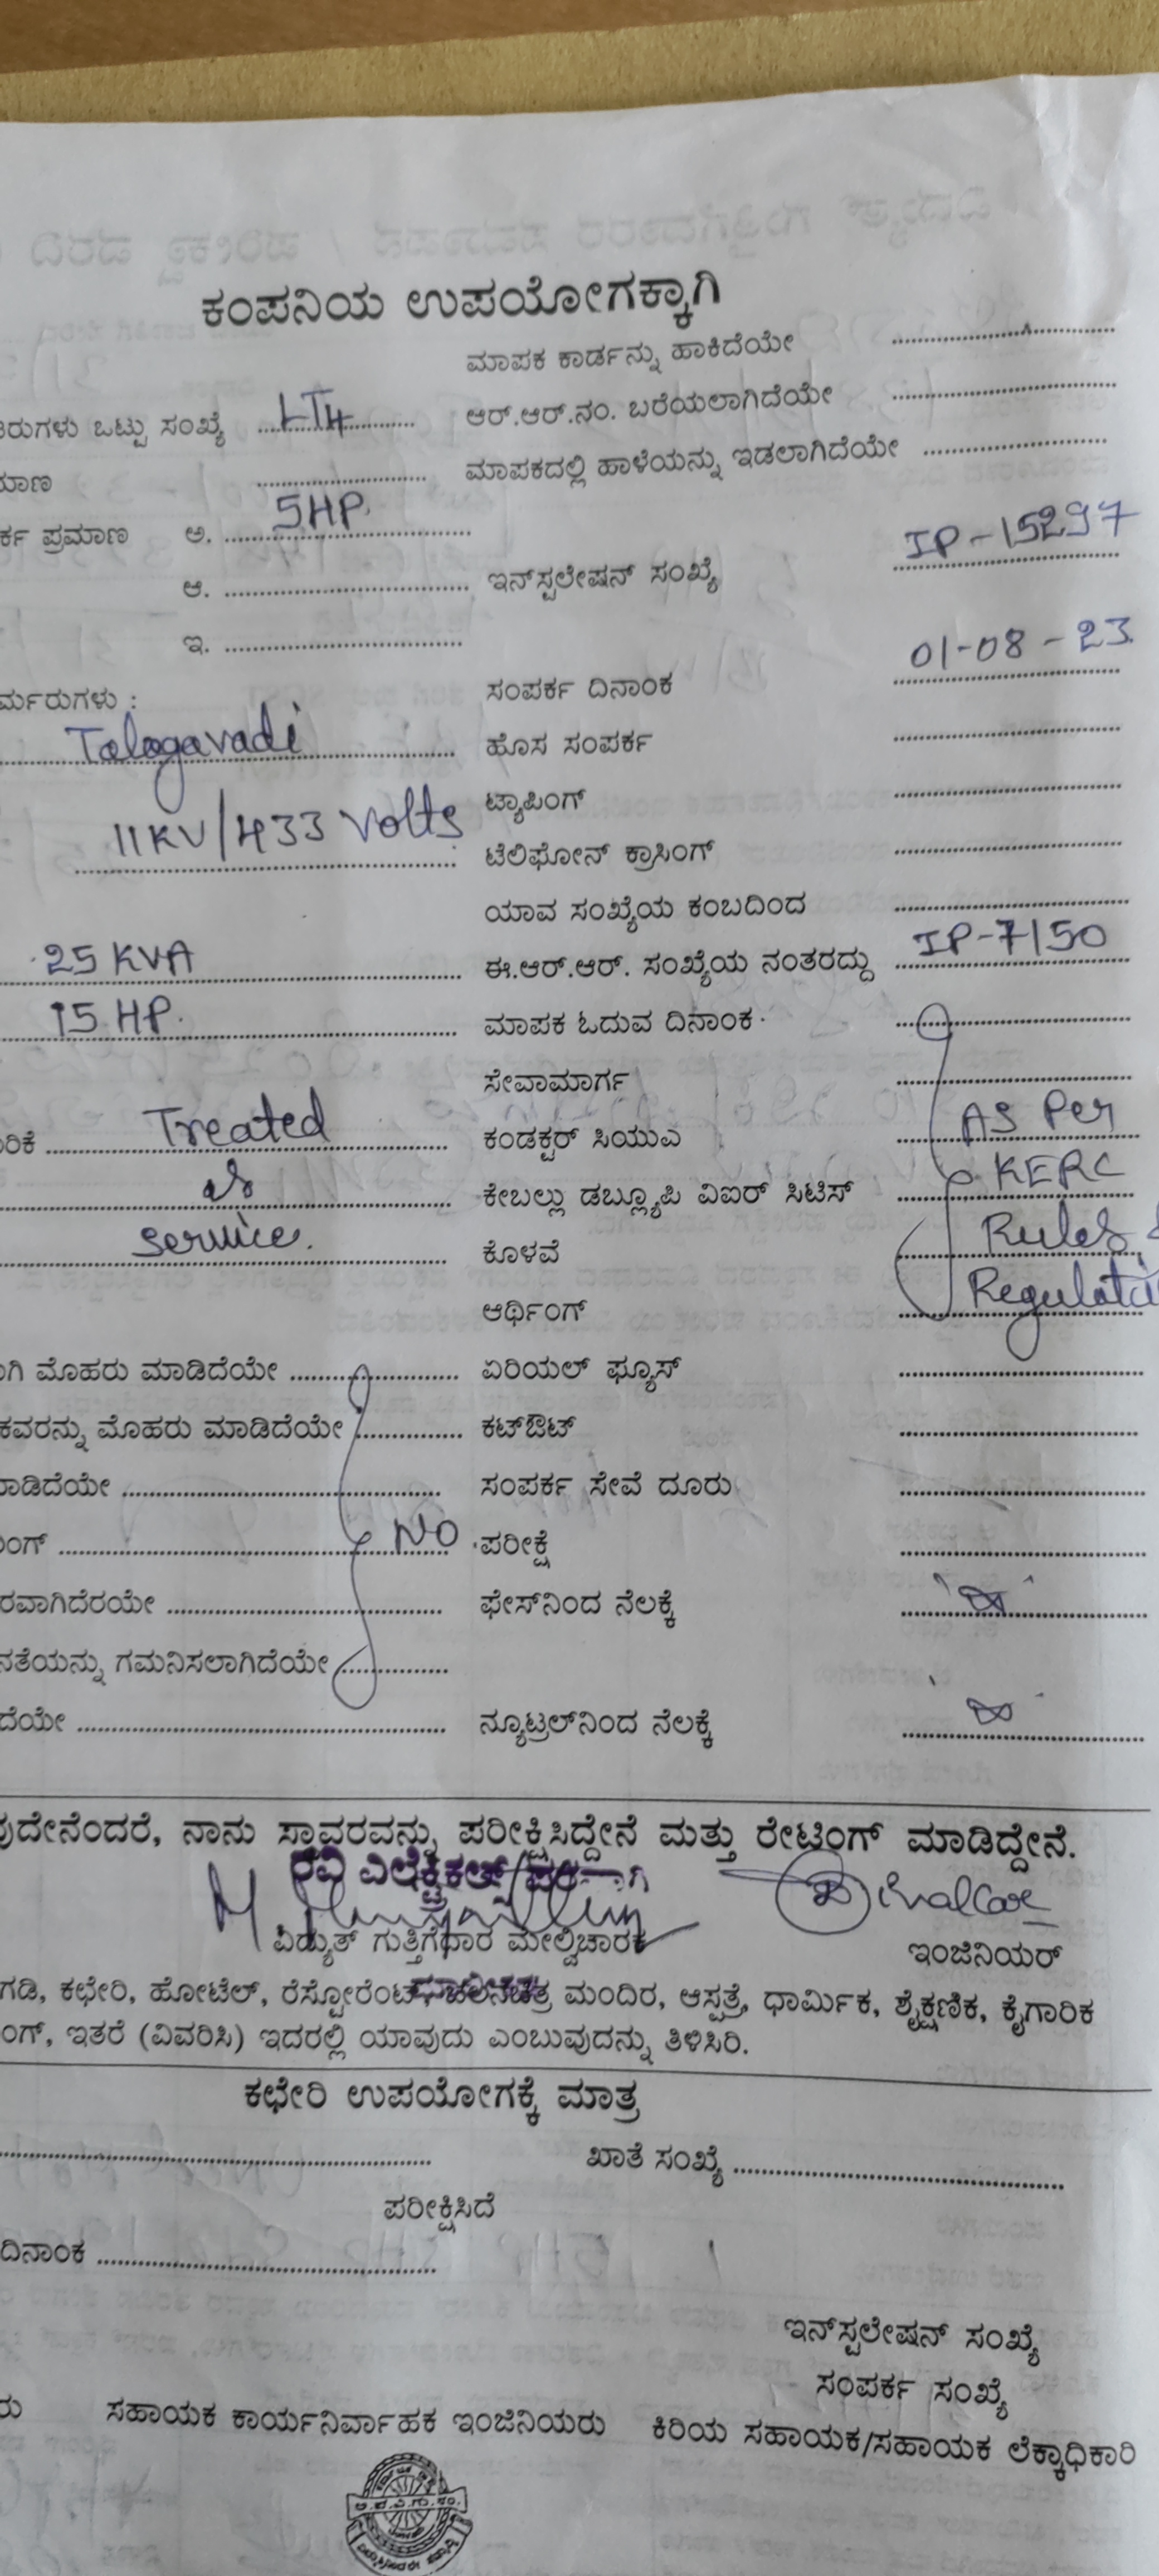 ಕಂಪನಿಯ ಉಪಯೋಗಕ್ಕಾಗಿ
ಮಾಪಕ ಕಾರ್ಡನ್ನು ಹಾಕಿದೆಯೇ
ಒಟ್ಟು ಸಂಖ್ಯೆ LT4 ಆರ್.ಆರ್.ನಂ. ಬರೆಯಲಾಗಿದೆಯೇ
ಮಾಪಕದಲ್ಲಿ ಹಾಳೆಯನ್ನು ಇಡಲಾಗಿದೆಯೇ
ಪ್ರಮಾಣ ಅ. 5HP
ಆ. ಇನ್‌ಸ್ಟಲೇಷನ್ ಸಂಖ್ಯೆ IP-15297
ಇ.
ಸಂಪರ್ಕ ದಿನಾಂಕ 01-08-23
Talagavadi ಹೊಸ ಸಂಪರ್ಕ
ಟ್ಯಾಪಿಂಗ್
11KV/433 Volts ಟೆಲಿಫೋನ್ ಕ್ರಾಸಿಂಗ್
ಯಾವ ಸಂಖ್ಯೆಯ ಕಂಬದಿಂದ
25 KVA ಈ.ಆರ್.ಆರ್. ಸಂಖ್ಯೆಯ ನಂತರದ್ದು IP-7150
15 HP. ಮಾಪಕ ಓದುವ ದಿನಾಂಕ
ಸೇವಾಮಾರ್ಗ
Treated ಕಂಡಕ್ಟರ್ ಸಿಯುಎ AS Per
as ಕೇಬಲ್ಲು ಡಬ್ಲ್ಯೂಪಿ ವಿಐರ್ ಸಿಟಿಸ್ KERC
service. ಕೊಳವೆ Rules &
ಆರ್ಥಿಂಗ್
ಮೊಹರು ಮಾಡಿದೆಯೇ ಏರಿಯಲ್ ಫ್ಯೂಸ್
ಕವರನ್ನು ಮೊಹರು ಮಾಡಿದೆಯೇ ಕಟ್‌ಔಟ್
ಸಂಪರ್ಕ ಸೇವೆ ದೂರು
NO ಪರೀಕ್ಷೆ
ಫೇಸ್‌ನಿಂದ ನೆಲಕ್ಕೆ
ಗಮನಿಸಲಾಗಿದೆಯೇ
ನ್ಯೂಟ್ರಲ್‌ನಿಂದ ನೆಲಕ್ಕೆ
ನಾನು ಸ್ಥಾವರವನ್ನು ಪರೀಕ್ಷಿಸಿದ್ದೇನೆ ಮತ್ತು ರೇಟಿಂಗ್ ಮಾಡಿದ್ದೇನೆ.
ರವಿ ಎಲೆಕ್ಟ್ರಿಕಲ್ಸ್
ವಿದ್ಯುತ್ ಗುತ್ತಿಗೆದಾರ ಮೇಲ್ವಿಚಾರಕ ಇಂಜಿನಿಯರ್
ಕಛೇರಿ, ಹೋಟೆಲ್, ರೆಸ್ಟೋರೆಂಟ್, ಚಲನಚಿತ್ರ ಮಂದಿರ, ಆಸ್ಪತ್ರೆ, ಧಾರ್ಮಿಕ, ಶೈಕ್ಷಣಿಕ, ಕೈಗಾರಿಕ
ಇತರೆ (ವಿವರಿಸಿ) ಇದರಲ್ಲಿ ಯಾವುದು ಎಂಬುವುದನ್ನು ತಿಳಿಸಿರಿ.
ಕಛೇರಿ ಉಪಯೋಗಕ್ಕೆ ಮಾತ್ರ
ಖಾತೆ ಸಂಖ್ಯೆ
ಪರೀಕ್ಷಿಸಿದೆ
ದಿನಾಂಕ
ಇನ್‌ಸ್ಟಲೇಷನ್ ಸಂಖ್ಯೆ
ಸಂಪರ್ಕ ಸಂಖ್ಯೆ
ಸಹಾಯಕ ಕಾರ್ಯನಿರ್ವಾಹಕ ಇಂಜಿನಿಯರು ಕಿರಿಯ ಸಹಾಯಕ/ಸಹಾಯಕ ಲೆಕ್ಕಾಧಿಕಾರಿ